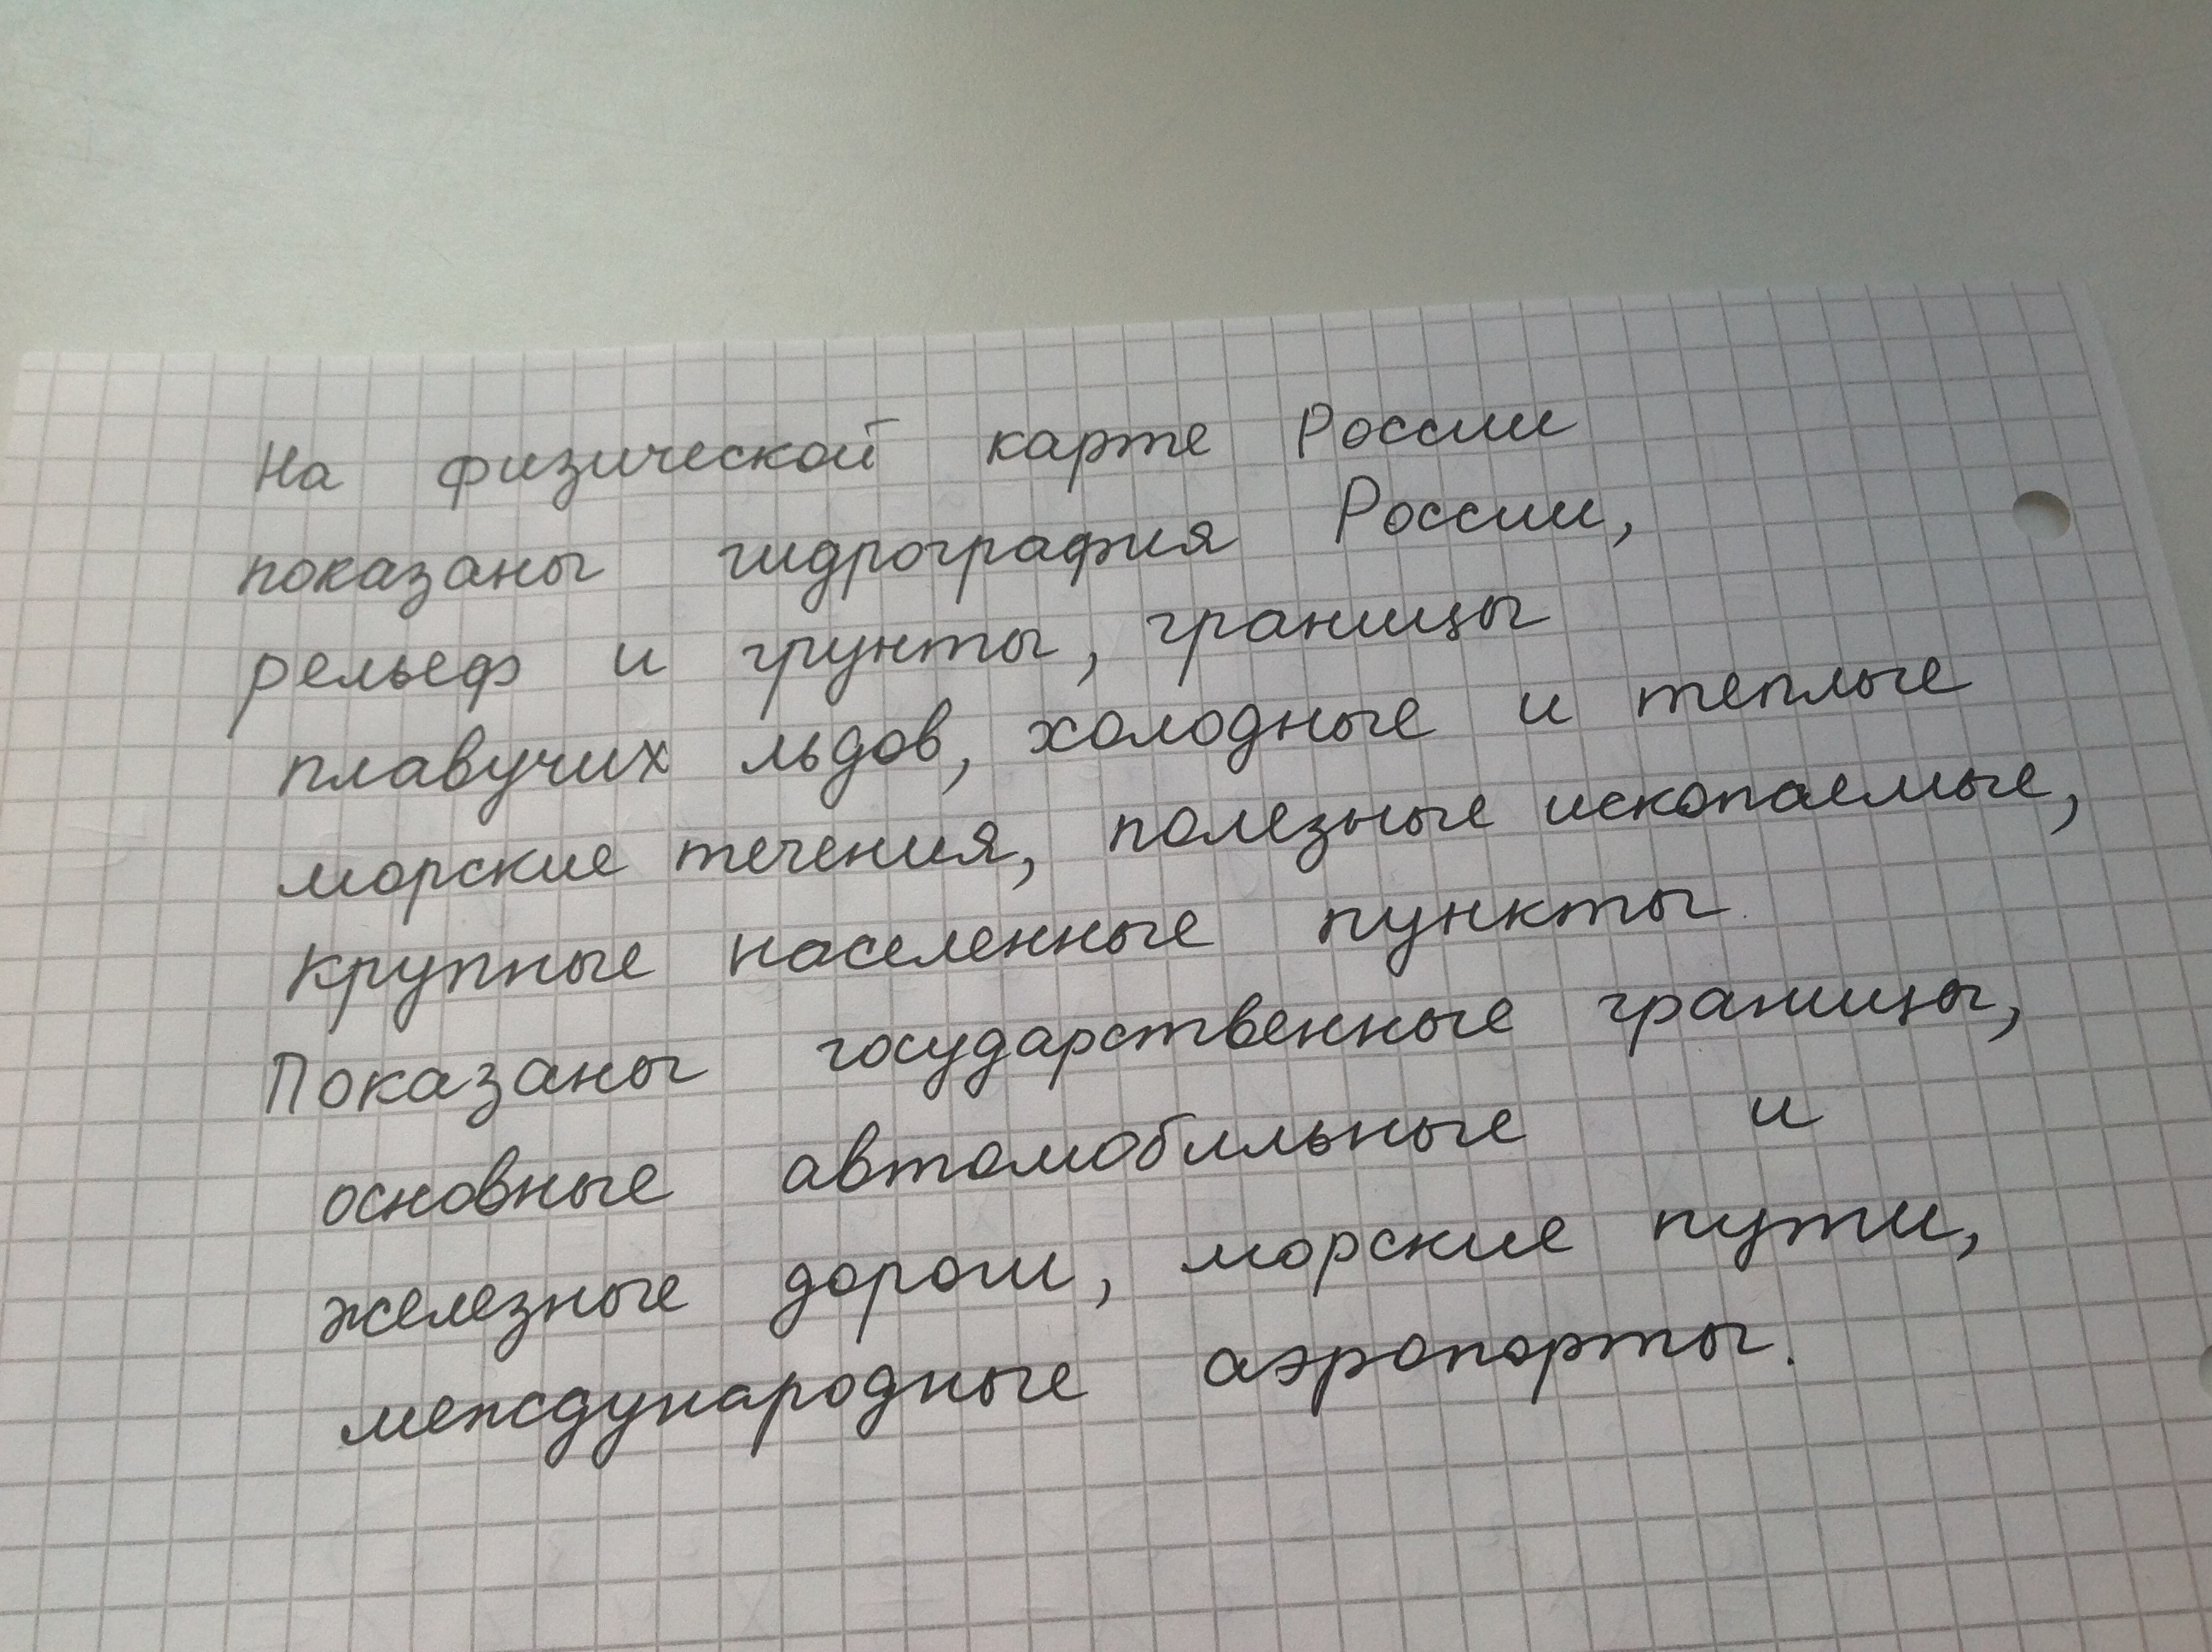 На физической карте России
показаны гидрография России,
рельеф и грунты, границы
плавучих льдов, холодные и теплые
морские течения, полезные ископаемые,
крупные населенные пункты.
Показаны государственные границы,
основные автомобильные и
железные дороги, морские пути,
международные аэропорты.